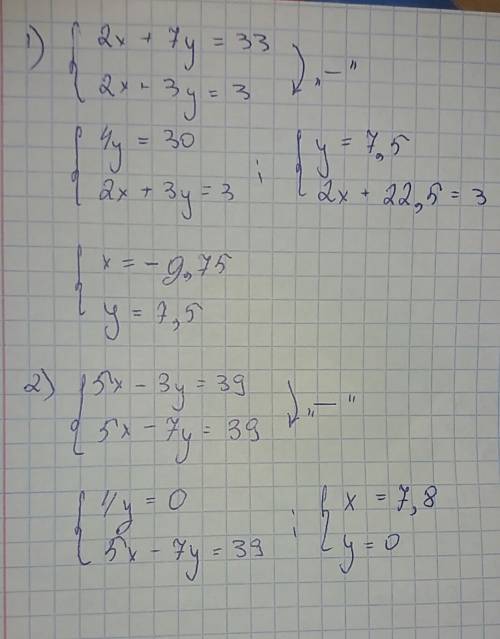 1) { 2x + 7y = 33
2x + 3y = 3 „—“
{ 4y = 30
2x + 3y = 3 ; { y = 7,5
2x + 22,5 = 3
{ x = - 9,75
y = 7,5
2) { 5x - 3y = 39
5x - 7y = 39 „—“
{ 4y = 0
5x - 7y = 39 ; { x = 7,8
y = 0